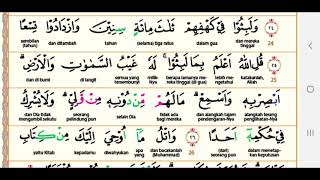 ٢٤ وَلَبِثُوْا فِيْ كَهْفِهِمْ ثَلٰثَ مِائَةٍ سِنِيْنَ وَازْدَادُوْا تِسْعًا
24 dan mereka tinggal dalam gua mereka (selama) tiga ratus tahun dan ditambah sembilan (tahun)
٢٥ قُلِ اللّٰهُ اَعْلَمُ بِمَا لَبِثُوْا لَهٗ غَيْبُ السَّمٰوٰتِ وَالْاَرْضِ
25 katakanlah, Allah lebih mengetahui berapa lamanya mereka tinggal (di gua) milik-Nya semua yang tersembunyi di langit dan di bumi
اَبْصِرْ بِهٖ وَاَسْمِعْ مَا لَهُمْ مِّنْ دُوْنِهٖ مِنْ وَّلِيٍّ وَّلَا يُشْرِكُ
alangkah terang penglihatan-Nya alangkah tajam pendengaran-Nya tidak ada bagi mereka selain Dia seorang pelindung pun dan Dia tidak mengambil sekutu
فِيْ حُكْمِهٖٓ اَحَدًا ٢٦ وَاتْلُ مَآ اُوْحِيَ اِلَيْكَ مِنْ كِتَابِ
dalam menetapkan keputusan seorang pun 26 dan bacakanlah (Muhammad) apa yang diwahyukan kepadamu yaitu Kitab